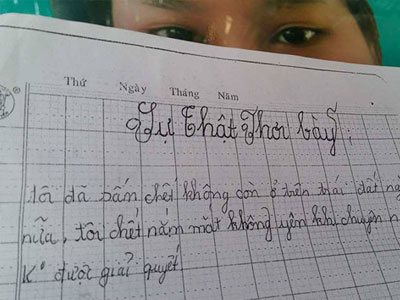 Thứ Ngày Tháng Năm
Sự Thật Phơi bày:
tôi đã sắn chết không còn ở trên trái đất
nữa, tôi chết nắm mắt không yên khi chuyện
K° được giải quyết